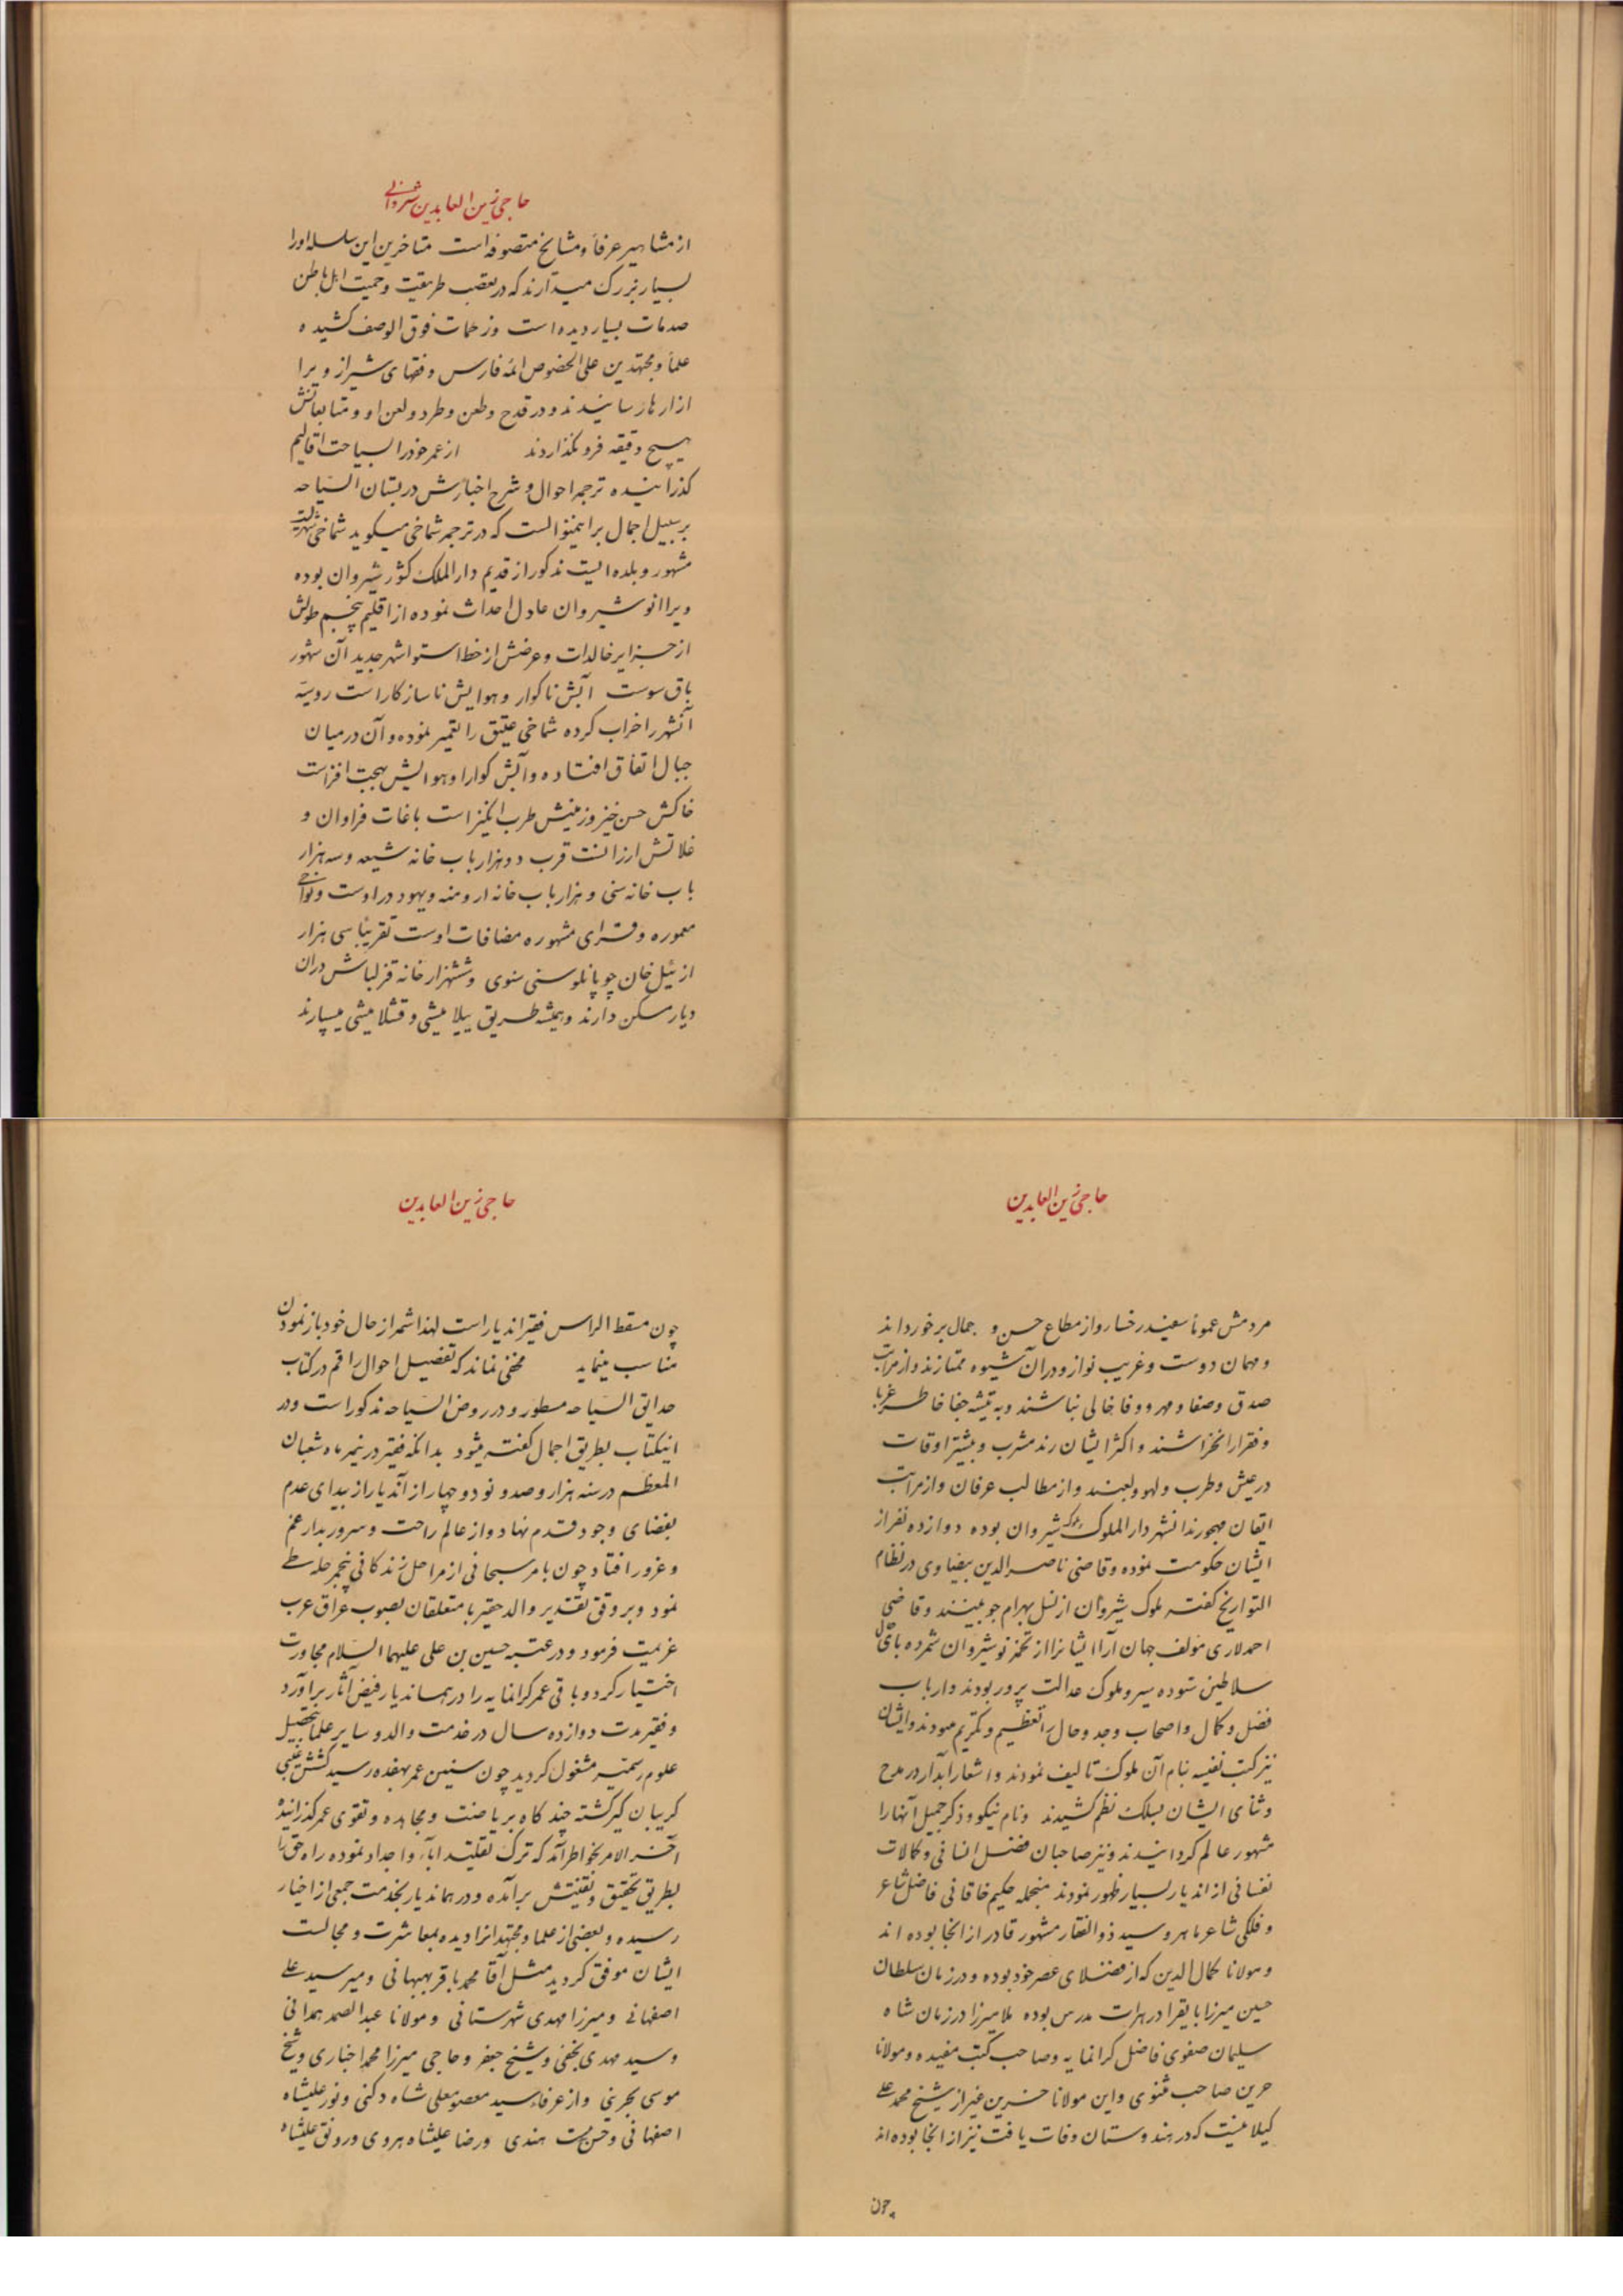 حاجی زین العابدین شیروانی
از مشاهیر عرفا و مشایخ متصوفه است متاخرین این سلسله او را
بسیار بزرک میدارند که در تعصب طریقت و حمیت اهل باطن
صدمات بسیار دیده است وزحمات فوق الوصف کشیده
علما و مجتهدین علی الخصوص ائمه فارس و فقهای شیراز ویرا
ازارها رسانیدند و در قدح وطعن وطرد ولعن او و متابعانش
هیچ دقیقه فرو نکذاردند از عمر خود را بسیاحت اقالیم
کذرانیده ترجمه احوال و شرح اخبارش در بستان السیاحه
بر سبیل اجمال براینمنوالست که در ترجمه شماخی میکوید شماخی شهریست
مشهور و بلده ایست مذکور از قدیم دار الملک کشور شیروان بوده
ویرا انوشیروان عادل احداث نموده از اقلیم پنجم طولش
از جزایر خالدات وعرضش از خط استوا شهر جدید آن مشهور
باق سوست آبش ناکوار و هوایش ناسازکار است روسیه
آنشهر را خراب کرده شماخی عتیق را تعمیر نموده و آن در میان
جبال اتفاق افتاده و آبش کوارا و هوایش بهجت افزاست
خاکش حسن خیز و زمینش طرب انکیز است باغات فراوان و
غلاتش ارزانست قرب دو هزار باب خانه شیعه و سه هزار
باب خانه سنی و هزار باب خانه ارومنه و یهود در اوست و نواحی
معموره و قرای مشهوره مضافات اوست تقریبا سی هزار
از ئیل خان چوپانلو سنی سنوی و ششهزار خانه قزلباش دران
دیار مسکن دارند و همیشه طریق ییلامیشی و قشلامیشی میسپارند
حاجی زین العابدین
مردمش عموما سفیدرخسار و از مطاع حسن و جمال برخوردارند
و مهمان دوست و غریب نواز و در ان شیوه ممتازند و از مراتب
صدق وصفا و مهر و وفا خالی نباشند و به تیشه جفا خاطر غربا
و فقرا را نخراشند و اکثر ایشان رند مشرب و بیشتر اوقات
در عیش وطرب ولهو ولعبند و از مطالب عرفان و از مراتب
اتقان مهجورند انشهر دار الملوک ملوک شیروان بوده دوازده نفر از
ایشان حکومت نموده وقاضی ناصر الدین بیضاوی در نظام
التواریخ کفته ملوک شیروان از نسل بهرام چوبینند وقاضی
احمد لاری مؤلف جهان آرا ایشانرا از تخمه نوشیروان شمرده بای حال
سلاطین ستوده سیر و ملوک عدالت پرور بودند و ارباب
فضل و کمال و اصحاب وجد و حال را تعظیم و تکریم نمودند و ایشان
نیز کتب نفیسه بنام آن ملوک تالیف نمودند و اشعار آبدار در مدح
و ثنای ایشان بسلک نظم کشیدند و نام نیکو و ذکر جمیل آنها را
مشهور عالم کردانیدند و نیز صاحبان فضل انسانی و کمالات
نفسانی از اندیار بسیار ظهور نمودند منجمله حکیم خاقانی فاضل شاعر
و فلکی شاعر ماهر و سید ذو الفقار مشهور قادر از انجا بوده اند
و مولانا کمال الدین که از فضلای عصر خود بوده و در زمان سلطان
حسین میرزا بایقرا در هرات مدرس بوده ملا میرزا در زمان شاه
سلیمان صفوی فاضل کرانمایه وصاحب کتب مفیده و مولانا
حزین صاحب مثنوی و این مولانا حزین غیر از شیخ محمد علی
کیلانیست که در هندوستان وفات یافت نیز از انجا بوده اند
چون
حاجی زین العابدین
چون مسقط الراس فقیر اندیار است لهذا شمه از حال خود باز نمودن
مناسب مینماید مخفی نماند که تفصیل احوال راقم در کتاب
حدایق السیاحه مسطور و در روض السیاحه مذکور است و در
اینکتاب بطریق اجمال کفته میشود بدانکه فقیر در نیمه ماه شعبان
المعظم در سنه هزار وصد و نود و چهار از آندیار از بیدای عدم
بفضای وجود قدم نهاد و از عالم راحت و سرور بدار غم
و غرور افتاد چون بامر سبحانی از مراحل زندکانی پنجمرحله طی
نمود و بر وفق تقدیر والد حقیر با متعلقان بصوب عراق عرب
عزیمت فرمود و در عتبه حسین بن علی علیهما السلام مجاورت
اختیار کرد و باقی عمر کرانمایه را در هماندیار فیض آثار برآورد
و فقیر مدت دوازده سال در خدمت والد و سایر علما بتحصیل
علوم رسمیه مشغول کردید چون سنین عمر بهفده رسید کشش غیبی
کریبان کیر کشته چند کاه بریاضت و مجاهده و تقوی عمر کذرانیده
آخر الامر بخاطر آمد که ترک تقلید اباء و اجداد نموده راه حق را
بطریق تحقیق و تفتیش برآمده و در هماندیار بخدمت جمعی از اخیار
رسیده و بعضی از علما و مجتهدانرا دیده و بمعاشرت و مجالست
ایشان موفق کردید مثل آقا محمد باقر بهبهانی و میر سید علی
اصفهانی و میرزا مهدی شهرستانی و مولانا عبد الصمد همدانی
و سید مهدی نجفی و شیخ جعفر و حاجی میرزا محمد اخباری و شیخ
موسی بحرینی و از عرفاء سید معصومعلی شاه دکنی و نور علیشاه
اصفهانی و هندی و رضا علیشاه هروی و رونق علیشاه